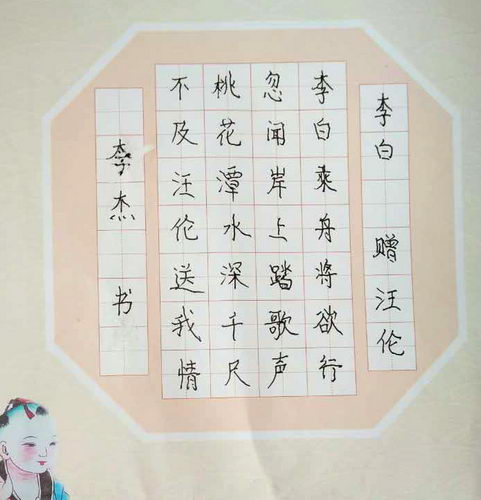 李白 赠汪伦
李白乘舟将欲行
忽闻岸上踏歌声
桃花潭水深千尺
不及汪伦送我情
李杰 书